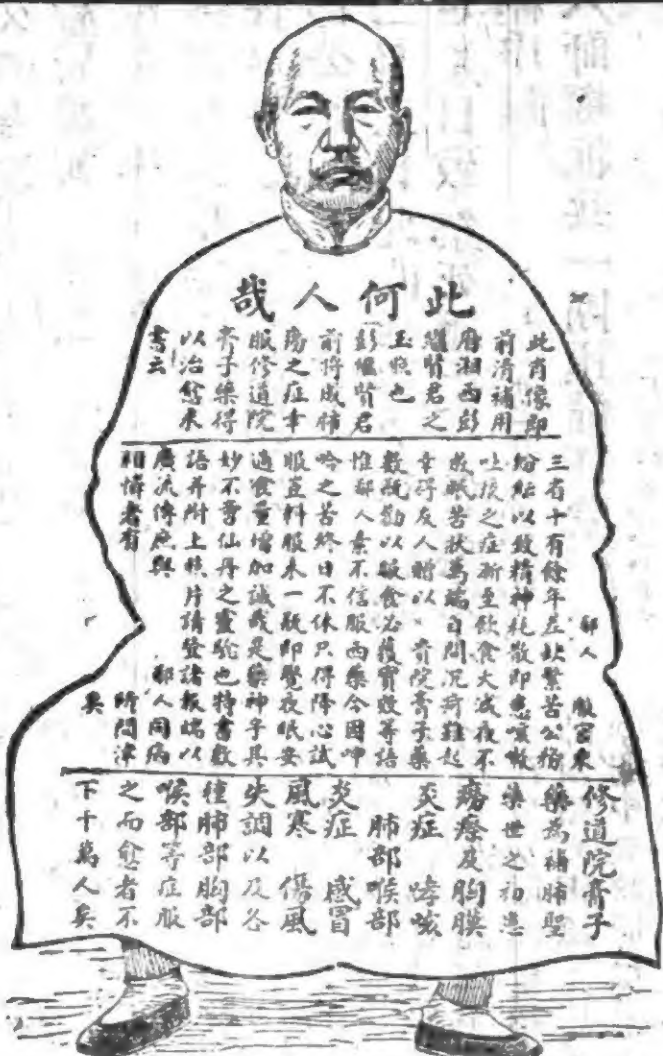 此何人哉
此肖像即
前清補用
府湘西彭
繼賢君之
玉照也
彭繼賢君
前將成肺
癆之症幸
服修道院
膏子藥得
以治愈來
書云
鄙人 服官東
三省十有餘年差缺繁苦公務
紛紜以致精神耗散即患嗽
吐痰之症漸至飲食大減夜不
成眠苦狀萬端自問沉疴難起
幸得友人贈以 貴院膏子藥
數瓶勸以服食必獲實效等語
惟鄙人素不信服西藥今因呻
吟之苦終日不休只得降心試
服豈料服未一瓶即覺夜眠安
適食量增加誠哉是藥神乎其
妙不啻仙丹之靈驗也特書數
語并附上照片請登諸報端以
廣流傳庶與 鄙人同病
相憐者有 所問津
矣
修道院膏子
藥為補肺聖
藥世之初患
癆瘵及胸膜
炎症 哮咳
肺部喉部
炎症 感冒
風寒 傷風
失調以及各
種肺部胸部
喉部等症服
之而愈者不
下十萬人矣